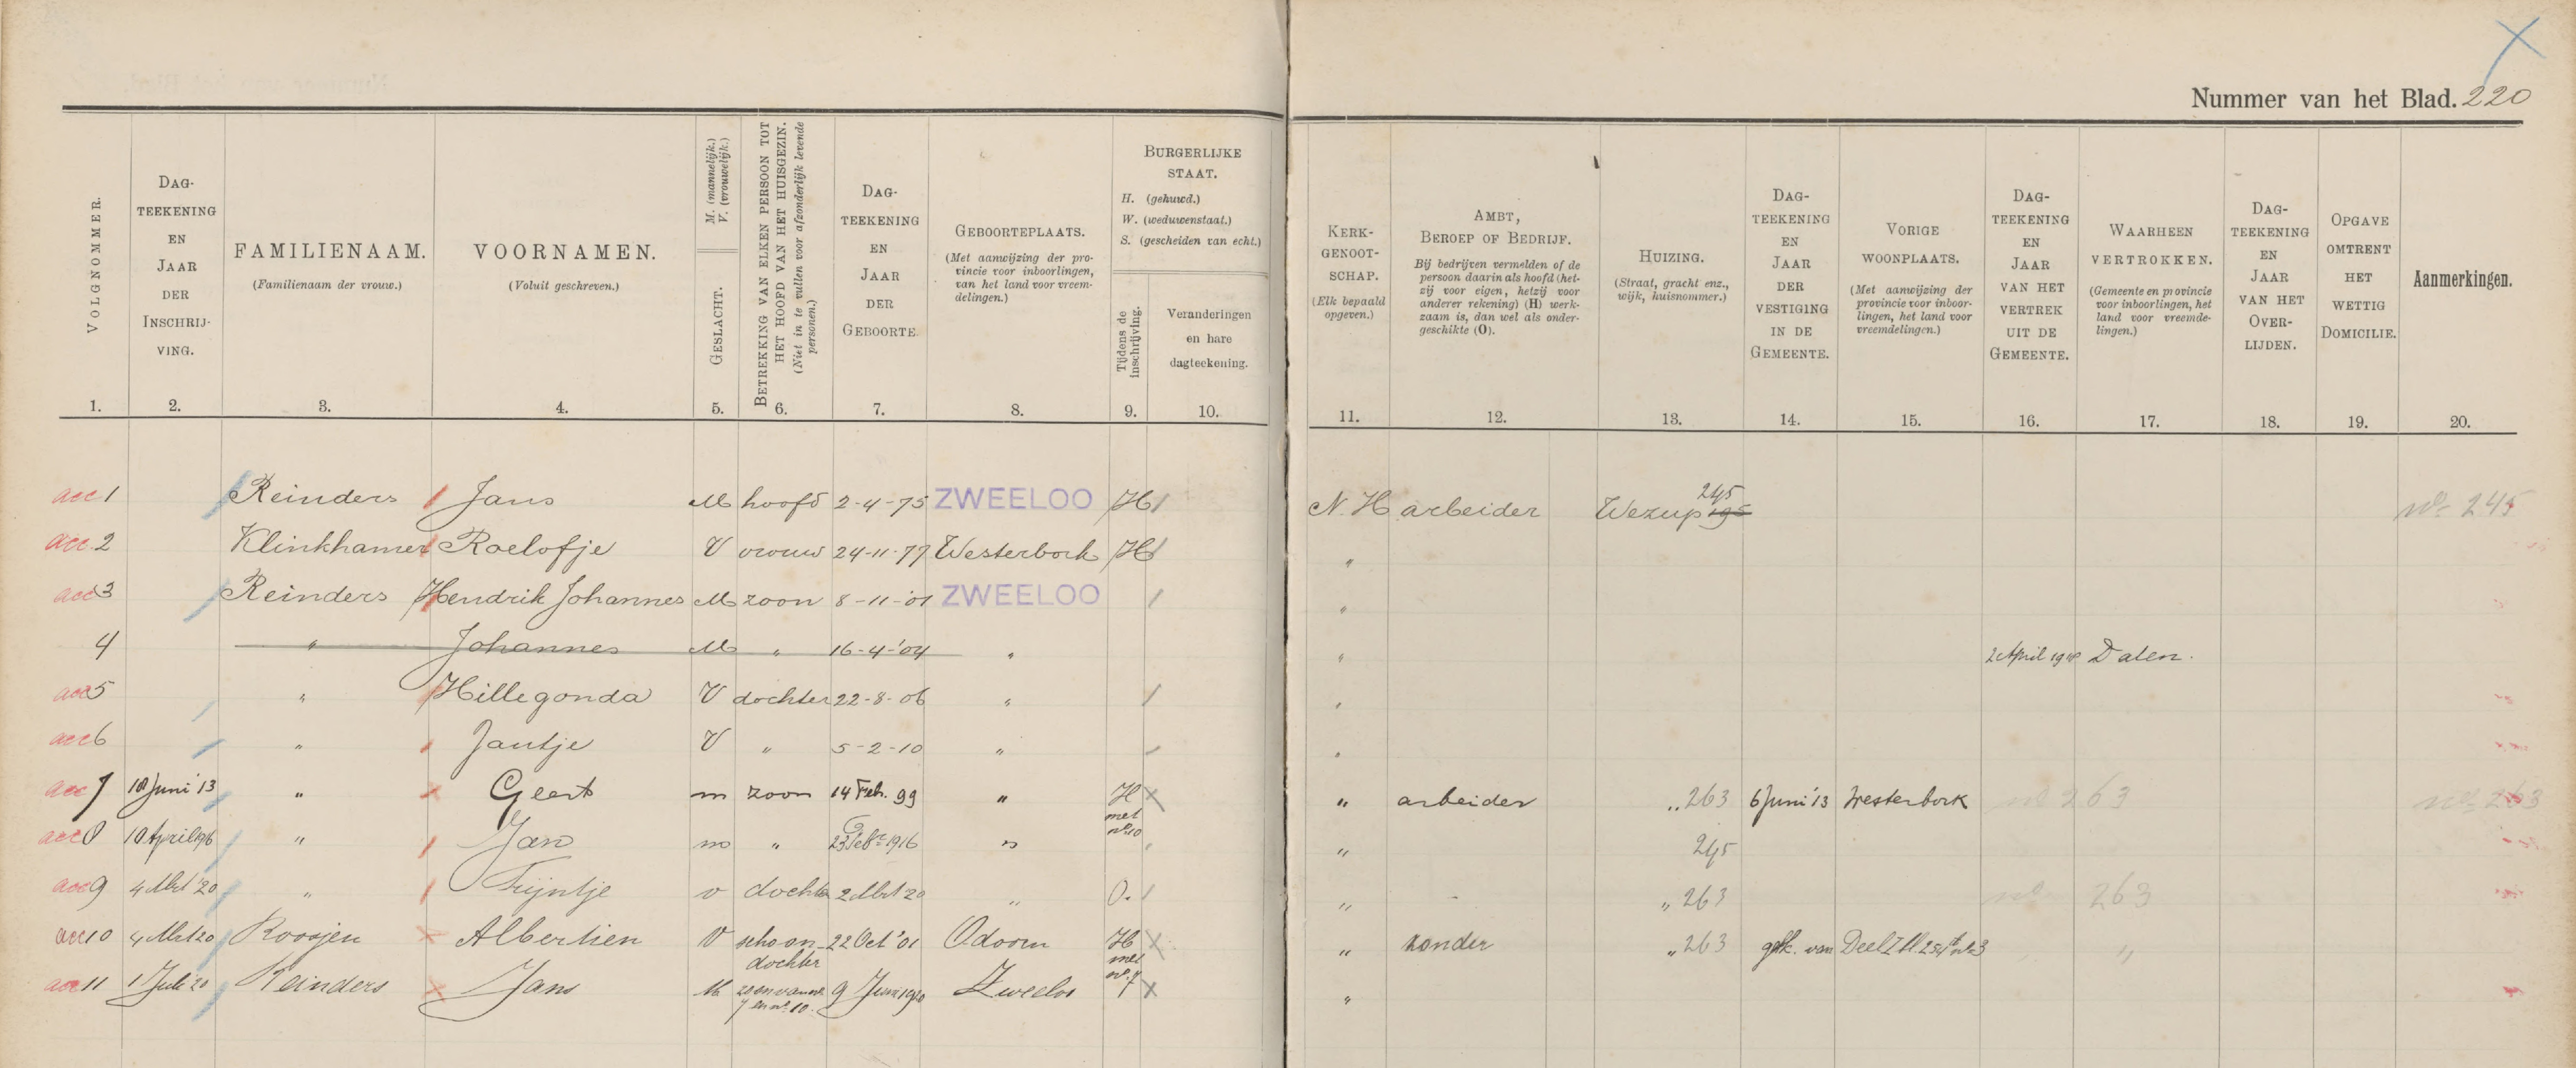 Nummer van het Blad. 220
VOLGNOMMER.
DAG-
TEEKENING
EN
JAAR
DER
INSCHRIJ-
VING.
FAMILIENAAM.
(Familienaam der vrouw.)
VOORNAMEN.
(Voluit geschreven.)
GESLACHT.
M. (mannelijk.)
V. (vrouwelijk.)
BETREKKING VAN ELKEN PERSOON TOT
HET HOOFD VAN HET HUISGEZIN.
(Niet in te vullen voor afzonderlijk levende
personen.)
DAG-
TEEKENING
EN
JAAR
DER
GEBOORTE.
GEBOORTEPLAATS.
(Met aanwijzing der pro-
vincie voor inboorlingen,
van het land voor vreem-
delingen.)
BURGERLIJKE
STAAT.
H. (gehuwd.)
W. (weduwenstaat.)
S. (gescheiden van echt.)
Tijdens de
inschrijving.
Veranderingen
en hare
dagteekening.
KERK-
GENOOT-
SCHAP.
(Elk bepaald
opgeven.)
AMBT,
BEROEP OF BEDRIJF.
Bij bedrijven vermelden of de
persoon daarin als hoofd (het-
zij voor eigen, hetzij voor
anderer rekening) (H) werk-
zaam is, dan wel als onder-
geschikte (O).
HUIZING.
(Straat, gracht enz.,
wijk, huisnommer.)
DAG-
TEEKENING
EN
JAAR
DER
VESTIGING
IN DE
GEMEENTE.
VORIGE
WOONPLAATS.
(Met aanwijzing der
provincie voor inboor-
lingen, het land voor
vreemdelingen.)
DAG-
TEEKENING
EN
JAAR
VAN HET
VERTREK
UIT DE
GEMEENTE.
WAARHEEN
VERTROKKEN.
(Gemeente en provincie
voor inboorlingen, het
land voor vreemde-
lingen.)
DAG-
TEEKENING
EN
JAAR
VAN HET
OVER-
LIJDEN.
OPGAVE
OMTRENT
HET
WETTIG
DOMICILIE.
Aanmerkingen.
1. 2. 3. 4. 5. 6. 7. 8. 9. 10. 11. 12. 13. 14. 15. 16. 17. 18. 19. 20.
acc 1 Reinders Jans M hoofd 2-4-75 ZWEELOO H N.H arbeider Wezup 195 245 no 245
acc 2 Klinkhamer Roelofje V vrouw 24-11-77 Westerbork H "
acc 3 Reinders Hendrik Johannes M zoon 8-11-'01 ZWEELOO "
4 " Johannes M " 16-4-'04 " " 2 April 1918 Dalen.
acc 5 " Hillegonda V dochter 22-8-06 " "
acc 6 " Jantje V " 5-2-10 " "
acc 7 10 Juni '13 " Geert m zoon 14 Feb. 99 " H met no 10 " arbeider " 263 6 Juni '13 Westerbork no 263 no 263
acc 8 10 April 1916 " Jan m " 23 Febr 1916 " " 245
acc 9 4 Mrt '20 " Trijntje v dochter 2 Mrt 20 " O. " - " 263 no 263
acc 10 4 Mrt 20 Roosjen Albertien V schoon- dochter 22 Oct '01 Odoorn H met no. 7 " zonder " 263 van Deel I "
acc 11 1 Juli '20 Reinders Jans M zoon van no 7 en no 10. 9 Juni 1920 Zweeloo "